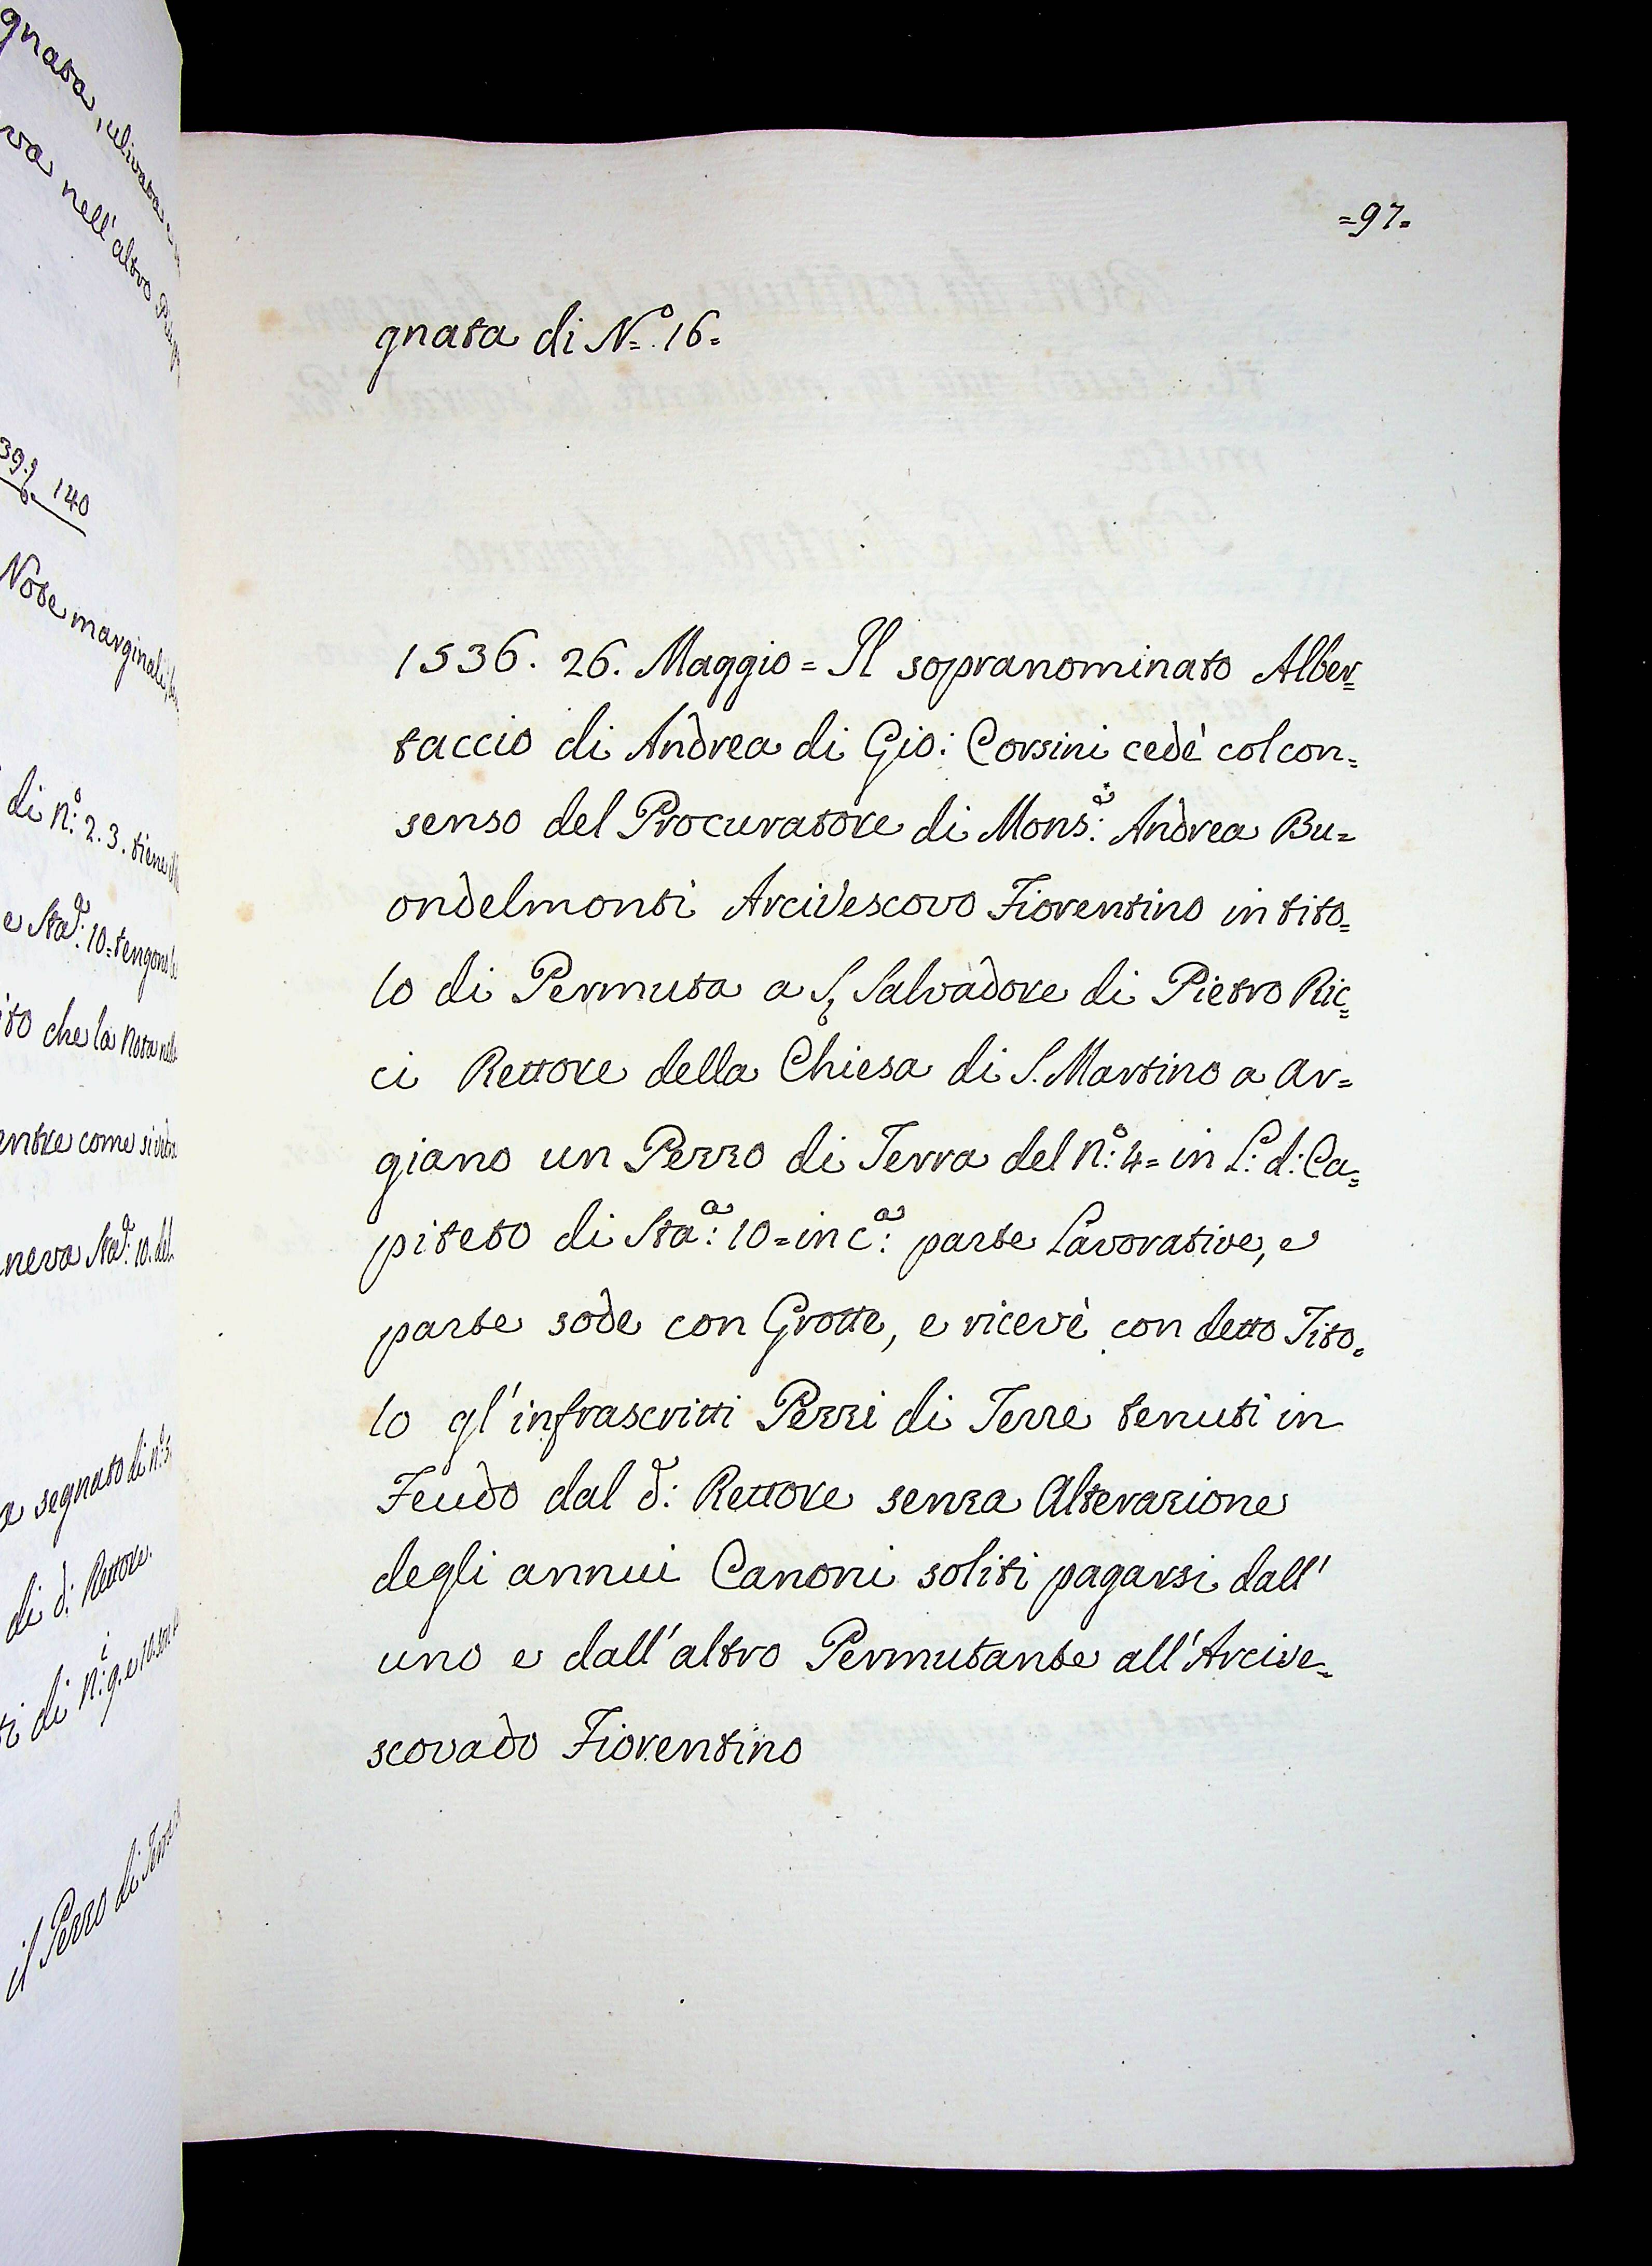 gnata, coltivata
va nell'altro
39. 140
Note marginali
di n.° 2. 3. tiene
e Sta.ª 10 = tengono
ito che la Nota nell
entre come si vede
neva Sta.ª 10. del
a segnato di n.°
di d.° Rettore.
ti di n.i 9. e 10 sono
il Pezzo di Terra
=97=
gnata di N.° 16=
1536. 26. Maggio = Il sopranominato Alber=
taccio di Andrea di Gio: Corsini cedè col con=
senso del Procuratore di Mons:e Andrea Bu=
ondelmonti Arcivescovo Fiorentino in tito=
lo di Permuta a S. Salvadore di Pietro Ric=
ci Rettore della Chiesa di S. Martino a Ar=
giano un Pezzo di Terra del n:° 4= in L: d: Ca=
piteto di Sta:ª 10= in c:ª parte Lavorative, e
parte sode con Grotte, e ricevè con detto Tito=
lo gl'infrascritti Pezzi di Terre tenuti in
Feudo dal d:° Rettore senza Alterazione
degli annui Canoni soliti pagarsi dall'
uno e dall'altro Permutante all'Arcive=
scovado Fiorentino